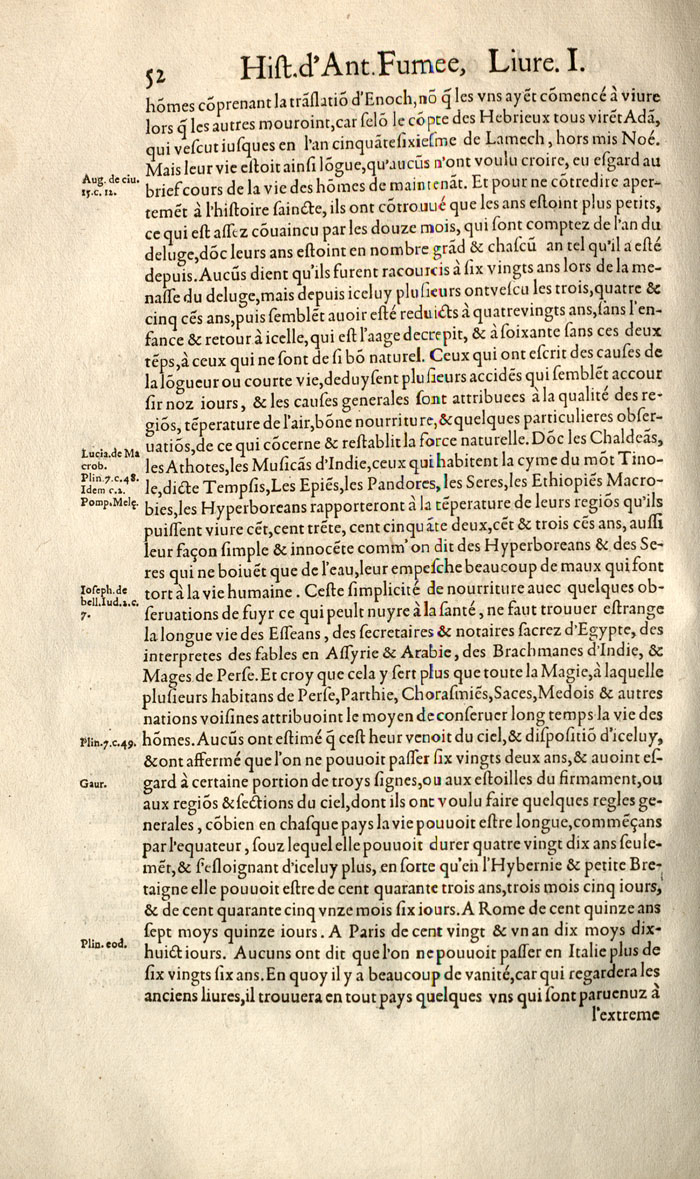 52 Hiſt.d'Ant.Fumee, Liure. I.
hõmes cõprenant la trãſlatiõ d'Enoch,nõ q̃ les vns ayẽt cõmencé à viure
lors q̃ les autres mouroint,car ſelõ le cõpte des Hebrieux tous virẽt Adã,
qui veſcut iuſques en l'an cinquãteſixieſme de Lamech, hors mis Noé.
Mais leur vie eſtoit ainſi lõgue,qu'aucũs n'ont voulu croire, eu eſgard au
Aug. de ciu.
15.c. 12.
brief cours de la vie des hõmes de maintenãt. Et pour ne cõtredire aper-
temẽt à l'hiſtoire ſaincte, ils ont cõtrouué que les ans eſtoint plus petits,
ce qui eſt aſſez cõuaincu par les douze mois, qui ſont comptez de l'an du
deluge,dõc leurs ans eſtoint en nombre grãd & chaſcũ an tel qu'il a eſté
depuis. Aucũs dient qu'ils furent racourcis à ſix vingts ans lors de la me-
naſſe du deluge,mais depuis iceluy pluſieurs ont veſcu les trois,quatre &
cinq cẽs ans,puis ſemblẽt auoir eſté reduicts à quatrevingts ans,ſans l'en-
fance & retour à icelle, qui eſt l'aage decrepit, & à ſoixante ſans ces deux
tẽps,à ceux qui ne ſont de ſi bõ naturel. Ceux qui ont eſcrit des cauſes de
la lõgueur ou courte vie,deduyſent pluſieurs accidẽs qui ſemblẽt accour
ſir noz iours, & les cauſes generales ſont attribuees à la qualité des re-
giõs, tẽperature de l'air,bõne nourriture,&quelques particulieres obſer-
uatiõs,de ce qui cõcerne & reſtablit la force naturelle. Dõc les Chaldeãs,
Lucia.de Ma
crob.
Plin.7.c.48.
Idem c.2.
Pomp.Melę.
les Athotes,les Muſicãs d'Indie,ceux qui habitent la cyme du mõt Tino-
le,dicte Tempſis,Les Epiẽs,les Pandores, les Seres,les Ethiopiẽs Macro-
bies,les Hyperboreans rapporteront à la tẽperature de leurs regiõs qu'ils
puiſſent viure cẽt,cent trẽte, cent cinquãte deux,cẽt & trois cẽs ans, auſſi
leur façon ſimple & innocẽte comm' on dit des Hyperboreans & des Se-
res qui ne boiuẽt que de l'eau,leur empeſche beaucoup de maux qui font
Ioſeph.de
bell.Iud.2.c.
7.
tort à la vie humaine. Ceſte ſimplicité de nourriture auec quelques ob-
ſeruations de fuyr ce qui peult nuyre à la ſanté, ne faut trouuer eſtrange
la longue vie des Eſſeans, des ſecretaires & notaires ſacrez d'Egypte, des
interpretes des fables en Aſſyrie & Arabie, des Brachmanes d'Indie, &
Mages de Perſe. Et croy que cela y ſert plus que toute la Magie,à laquelle
pluſieurs habitans de Perſe,Parthie, Choraſmiẽs,Saces,Medois & autres
nations voiſines attribuoint le moyen de conſeruer long temps la vie des
Plin.7.c.49.
hõmes. Aucũs ont eſtimé q̃ ceſt heur venoit du ciel,& diſpoſitiõ d'iceluy,
&ont affermé que l'on ne pouuoit paſſer ſix vingts deux ans,& auoint eſ-
Gaur.
gard à certaine portion de troys ſignes,ou aux eſtoilles du firmament,ou
aux regiõs &ſections du ciel,dont ils ont voulu faire quelques regles ge-
nerales, cõbien en chaſque pays la vie pouuoit eſtre longue,commẽçans
par l'equateur, ſouz lequel elle pouuoit durer quatre vingt dix ans ſeule-
mẽt,& s'eſloignant d'iceluy plus, en ſorte qu'en l'Hybernie & petite Bre-
taigne elle pouuoit eſtre de cent quarante trois ans,trois mois cinq iours,
& de cent quarante cinq vnze mois ſix iours. A Rome de cent quinze ans
ſept moys quinze iours. A Paris de cent vingt & vn an dix moys dix-
Plin. eod.
huict iours. Aucuns ont dit que l'on ne pouuoit paſſer en Italie plus de
ſix vingts ſix ans. En quoy il y a beaucoup de vanité,car qui regardera les
anciens liures,il trouuera en tout pays quelques vns qui ſont paruenuz à
l'extreme